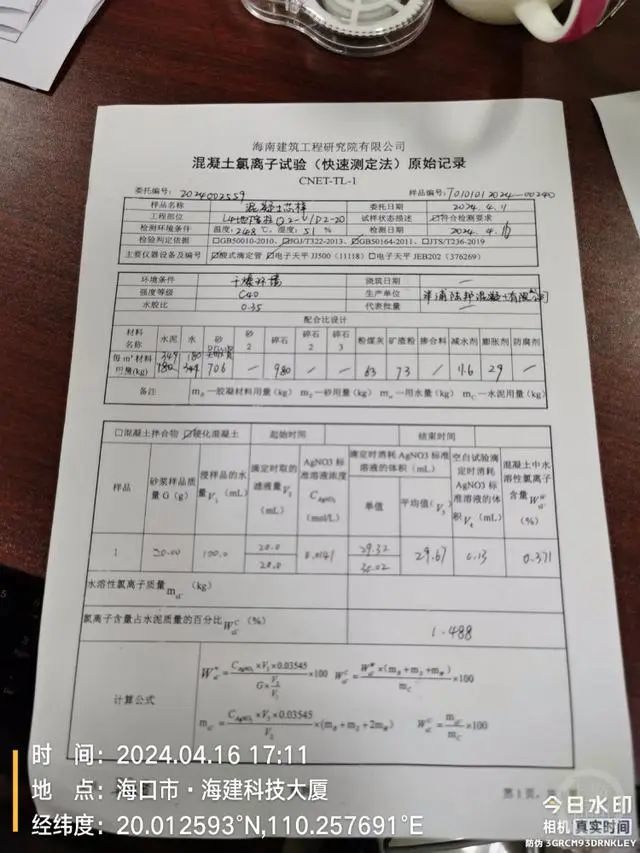 海南建筑工程研究院有限公司
混凝土氯离子试验（快速测定法）原始记录
CNET-TL-1
委托编号: 2024002559 样品编号: T010101 2024-00240
样品名称 混凝土芯样 委托日期 2024.4.11
工程部位 试样状态描述 ☑符合检测要求
检测环境条件 温度: 24.8 ℃, 湿度: 51 % 检测日期 2024.4.16
检验判定依据 □GB50010-2010、☑JGJ/T322-2013、☑GB50164-2011、□JTS/T236-2019
主要仪器设备及编号 ☑酸式滴定管 □电子天平 JJ500（11118） □电子天平 JEB202（376269）
环境条件 干燥环境 浇筑日期 —
强度等级 C40 生产单位 混凝土有限公司
水胶比 0.35 代表批量 —
配合比设计
材料名称 水泥 水 砂 砂2 碎石 碎石2 碎石3 粉煤灰 矿渣粉 掺合料 减水剂 膨胀剂 防腐剂
每m³材料用量(kg) 349 180 706 / 980 / / 63 73 / 29 /
备注 m_B—胶凝材料用量（kg） m_S—砂用量（kg） m_w—用水量（kg） m_C—水泥用量（kg）
□混凝土拌合物 ☑硬化混凝土 起始时间 结束时间
样品 砂浆样品质量 G（g） 浸样品的水量V₃（mL） 滴定时取的滤液量V₄（mL） AgNO3 标准溶液浓度 C_AgNO₃ (mol/L) 滴定时消耗 AgNO3 标准溶液的体积（mL） 单值 平均值（V₅） 空白试验滴定时消耗 AgNO3 标准溶液的体积V₆（mL） 混凝土中水溶性氯离子含量（%）
1 20.00 100.0 20.0 20.0 0.0141 29.32 30.02 29.67 0.13 0.371
水溶性氯离子质量 m_cl⁻ （kg）
氯离子含量占水泥质量的百分比 （%） 1.488
计算公式
第1页，共
时 间: 2024.04.16 17:11
地 点: 海口市·海建科技大厦
经纬度: 20.012593°N,110.257691°E
今日水印
相机 真实时间
防伪 3GRCM93DRNKLEY